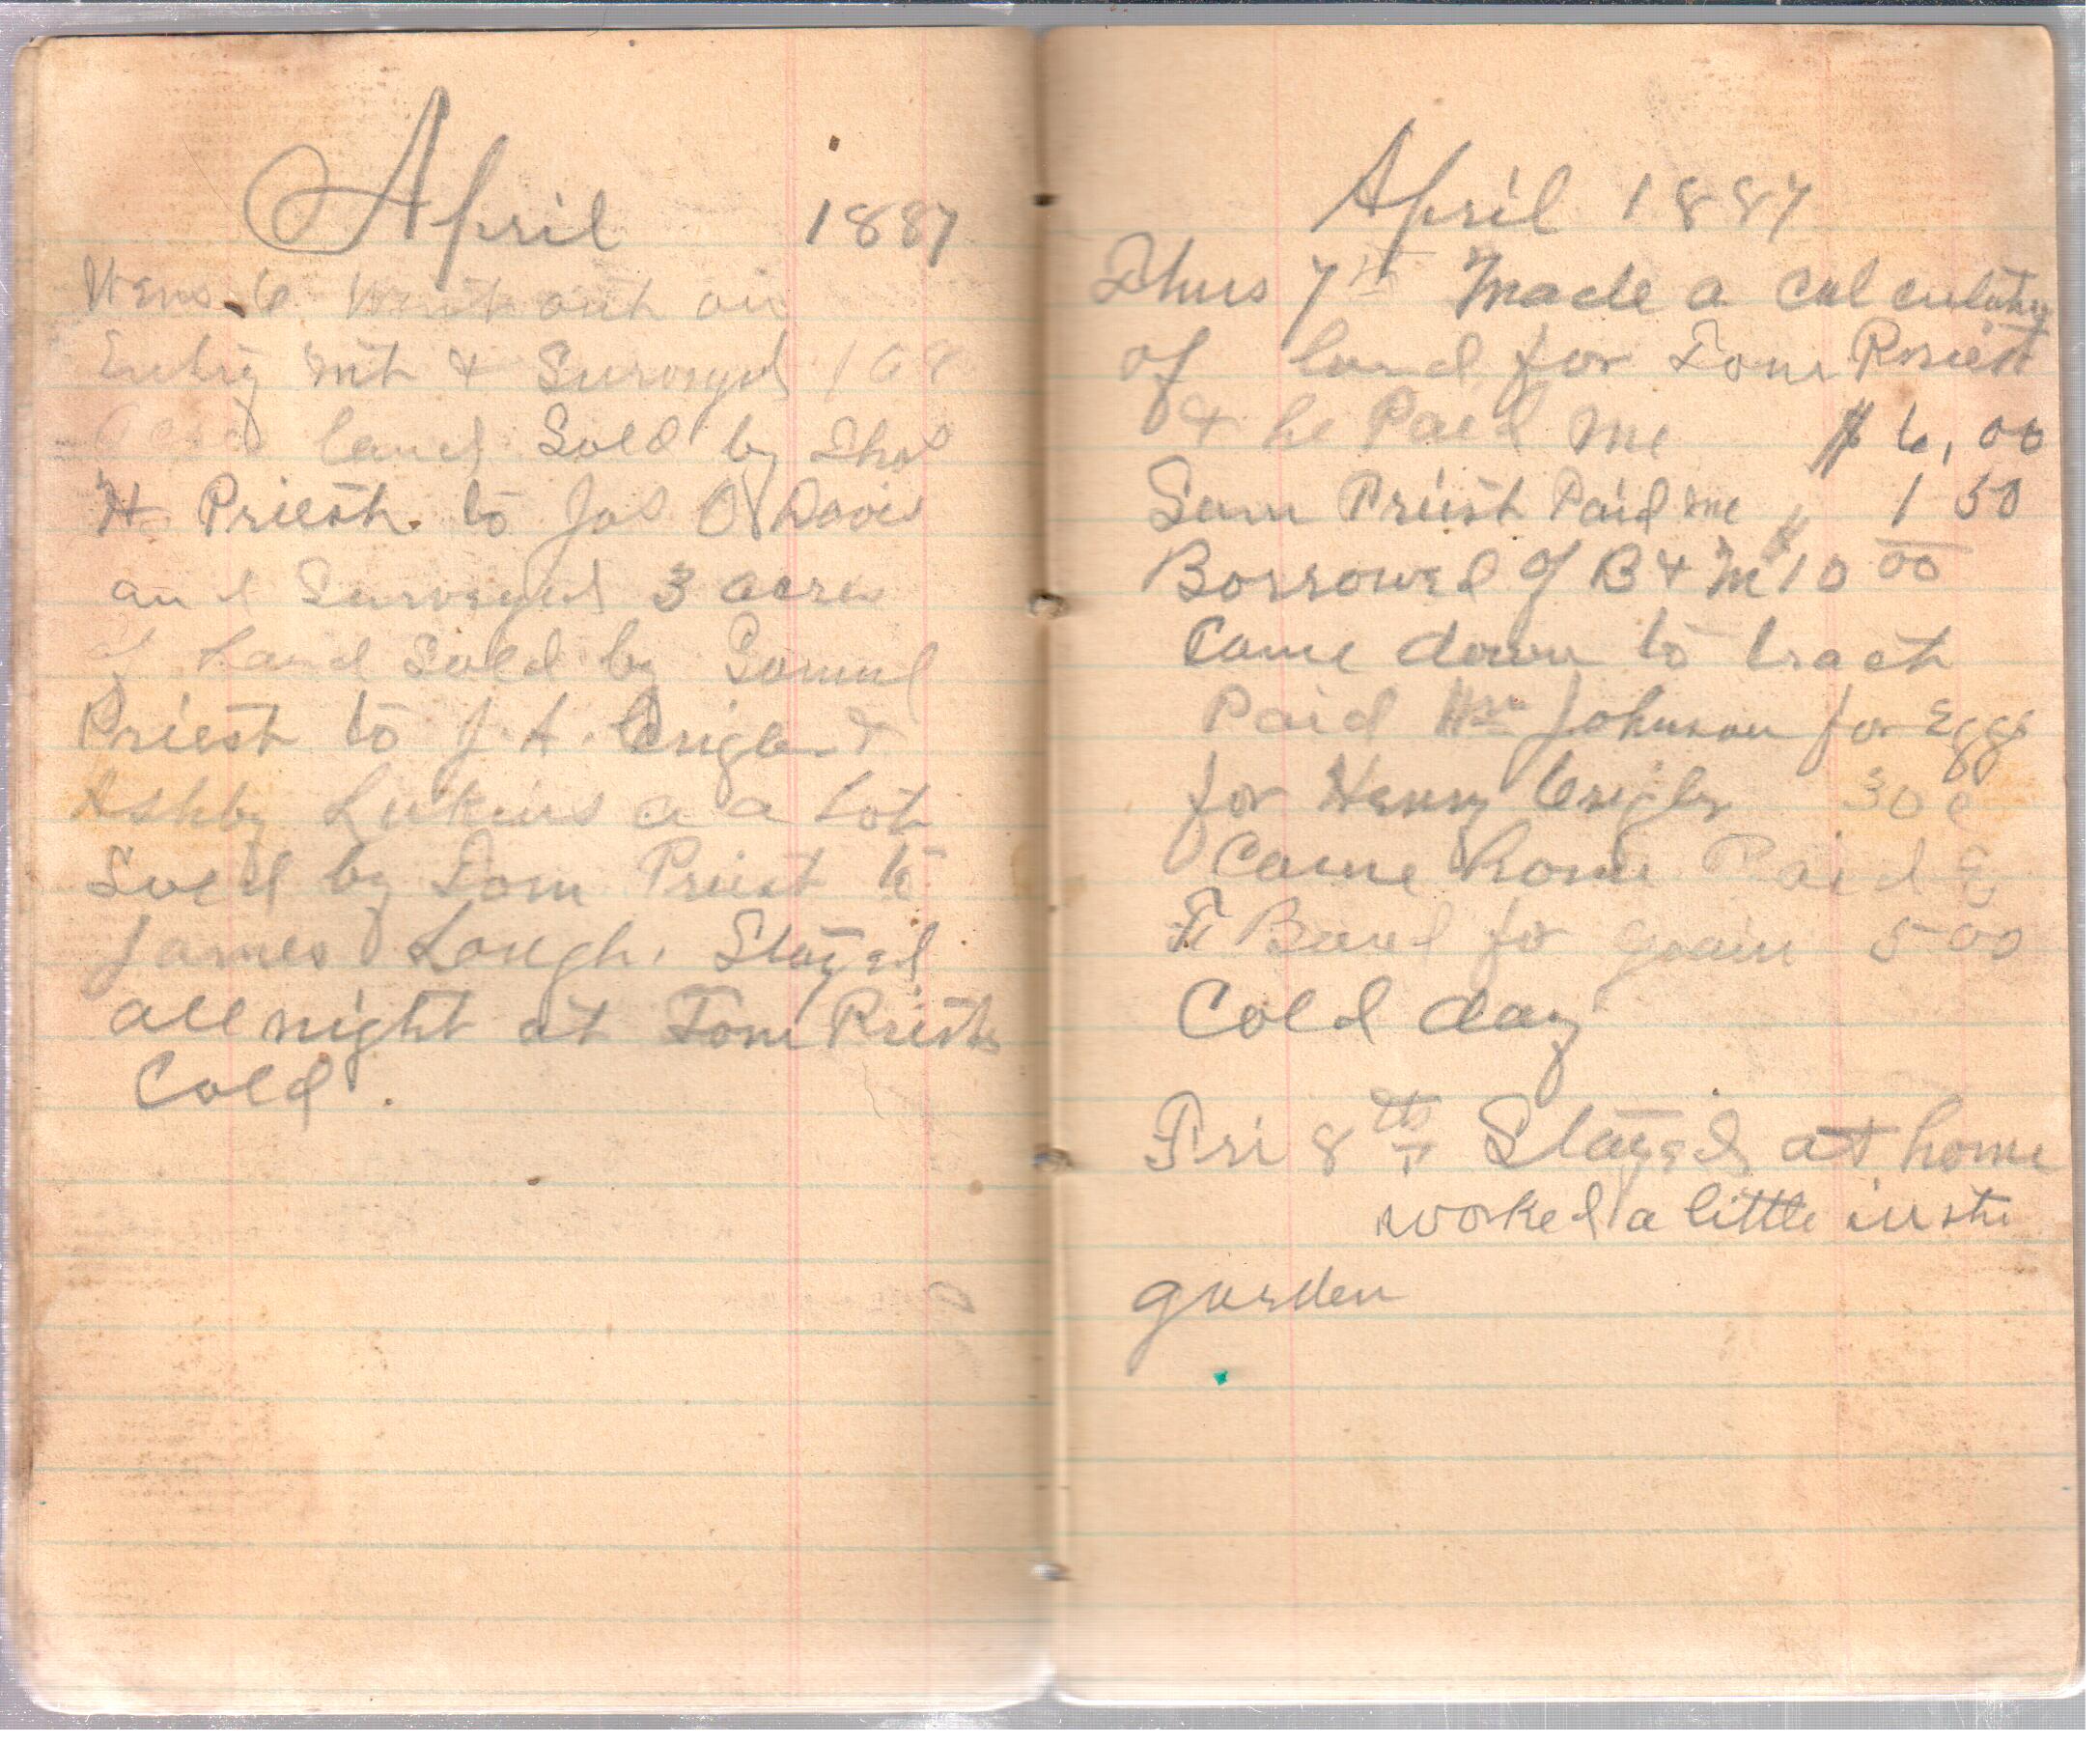 April 1887
Wens 6 Went out on
Entry Mt & Surveyed 108
Acres land Sold by Thos
H Priest to Jas O Davis
and Surveyed 3 acres
of Land Sold by
Priest to J. A. Crigler &
Ashby Lukins a a Lot
Sold by Tom Priest to
James Lough. Stayed
all night at Tom Priests
Cold.
April 1887
Thurs 7th Made a Calculation
of land for Tom Priest
& he Paid me $ 6,00
Sam Priest Paid me $ 1 50
Borrowed of B & M 10 00
Came down to tract
Paid Johnson for Eggs
for Henry Crigler 30 c
Came home Paid
for grain 5 00
Cold day
Fri 8th Stayed at home
worked a little in the
garden